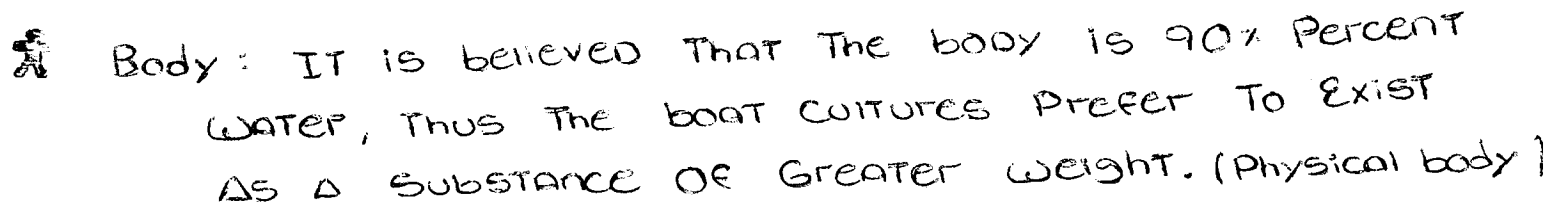 Body: IT is believed That The body is 90% Percent
Water, Thus The boat cultures Prefer To Exist
As a Substance of Greater weight. (Physical body)